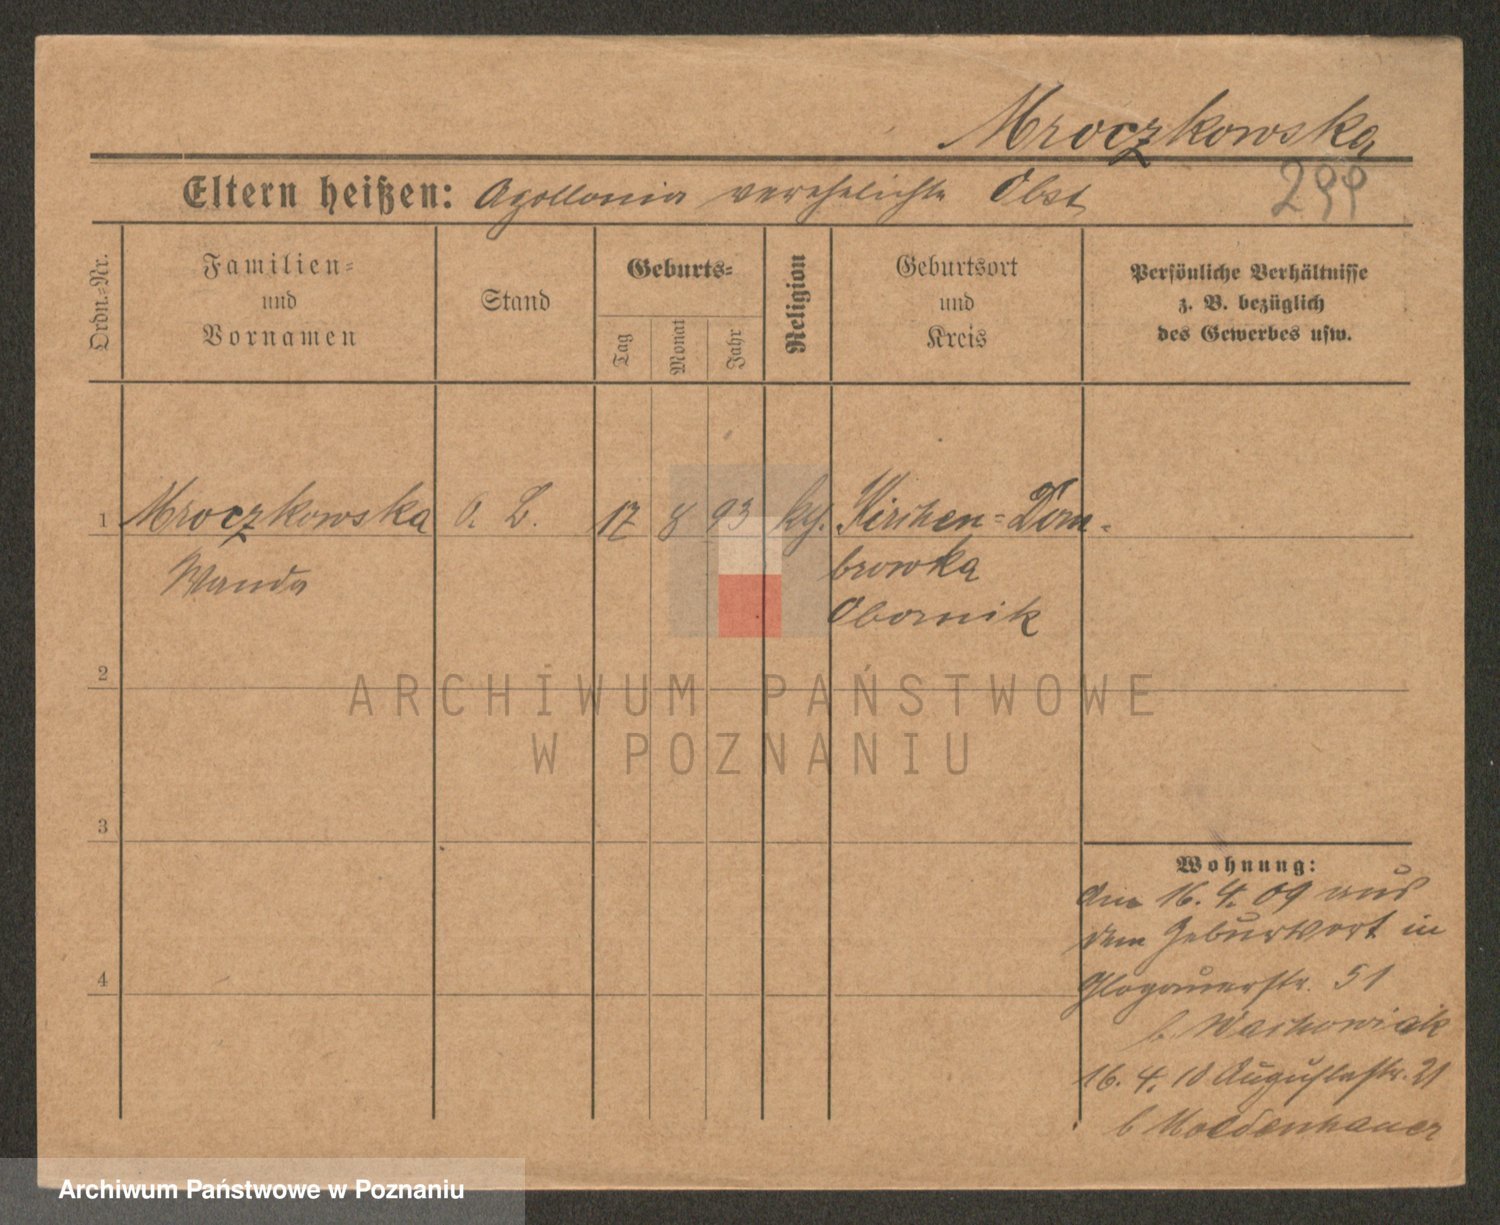 Mroczkowska
Eltern heißen: Apollonia verehelichte Obst
299
Ordn.=Nr.
Familien=
und
Vornamen
Stand
Geburts=
Tag
Monat
Jahr
Religion
Geburtsort
und
Kreis
Persönliche Verhältnisse
z. B. bezüglich
des Gewerbes usw.
1 Mroczkowska o. B. 17 8 93 kth. Kirchen=Dom-
Wanda browka
Obornik
2
3
4
Wohnung:
am 16. 4. 09 aus
dem Geburtsort in
Glogauerstr. 51
b. Warkowiak
16. 4. 10 Augustastr. 21
b Moldenhauer
ARCHIWUM PAŃSTWOWE
W POZNANIU
Archiwum Państwowe w Poznaniu